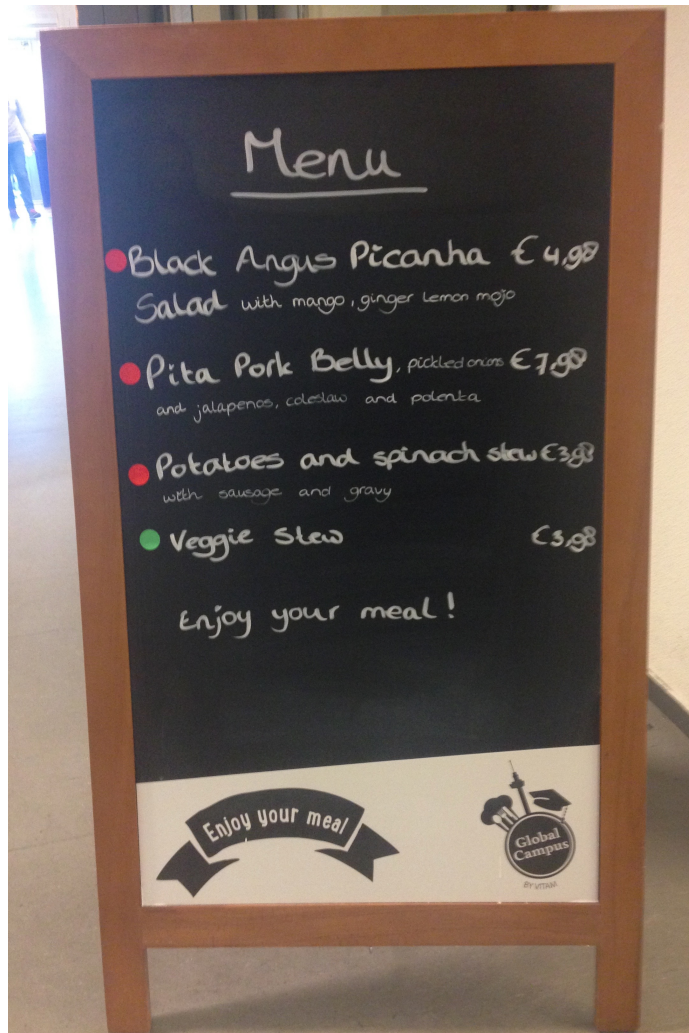 Menu
Black Angus Picanha € 4,98
Salad with mango, ginger lemon mojo
Pita Pork Belly, pickled onions € 7,98
and jalapenos, coleslaw and polenta
Potatoes and spinach stew € 3,98
with sausage and gravy
Veggie stew € 3,98
Enjoy your meal!
Enjoy your meal
Global
Campus
BY VITAM